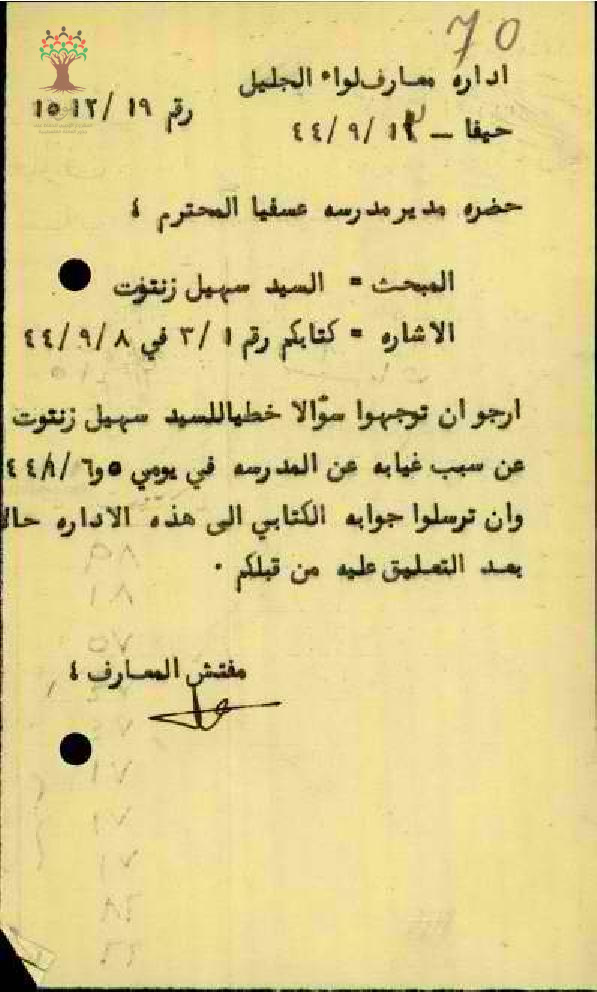 70
اداره معارف لواء الجليل
رقم ١٩/ ١٥١٢
حيفا – ١٢/ ٩/ ٤٤
حضره مدير مدرسه عسفيا المحترم ،
المبحث = السيد سهيل زنتوت
الاشاره = كتابكم رقم ٣/١ في ٨/ ٩/ ٤٤
ارجو ان توجهوا سؤالا خطياللسيد سهيل زنتوت
عن سبب غيابه عن المدرسه في يومي ٥ و٦/
وان ترسلوا جوابه الكتابي الى هذه الاداره حالا
بعد التعليق عليه من قبلكم ٠
مفتش المعارف ،